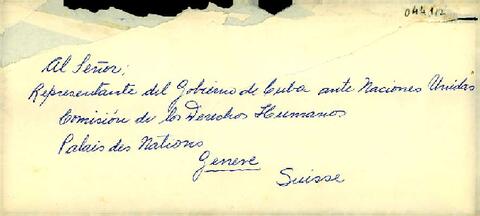 044112
Al Señor:
Representante del Gobierno de Cuba ante Naciones Unidas
Comisión de los Derechos Humanos
Palais des Nations
Geneve
Suisse